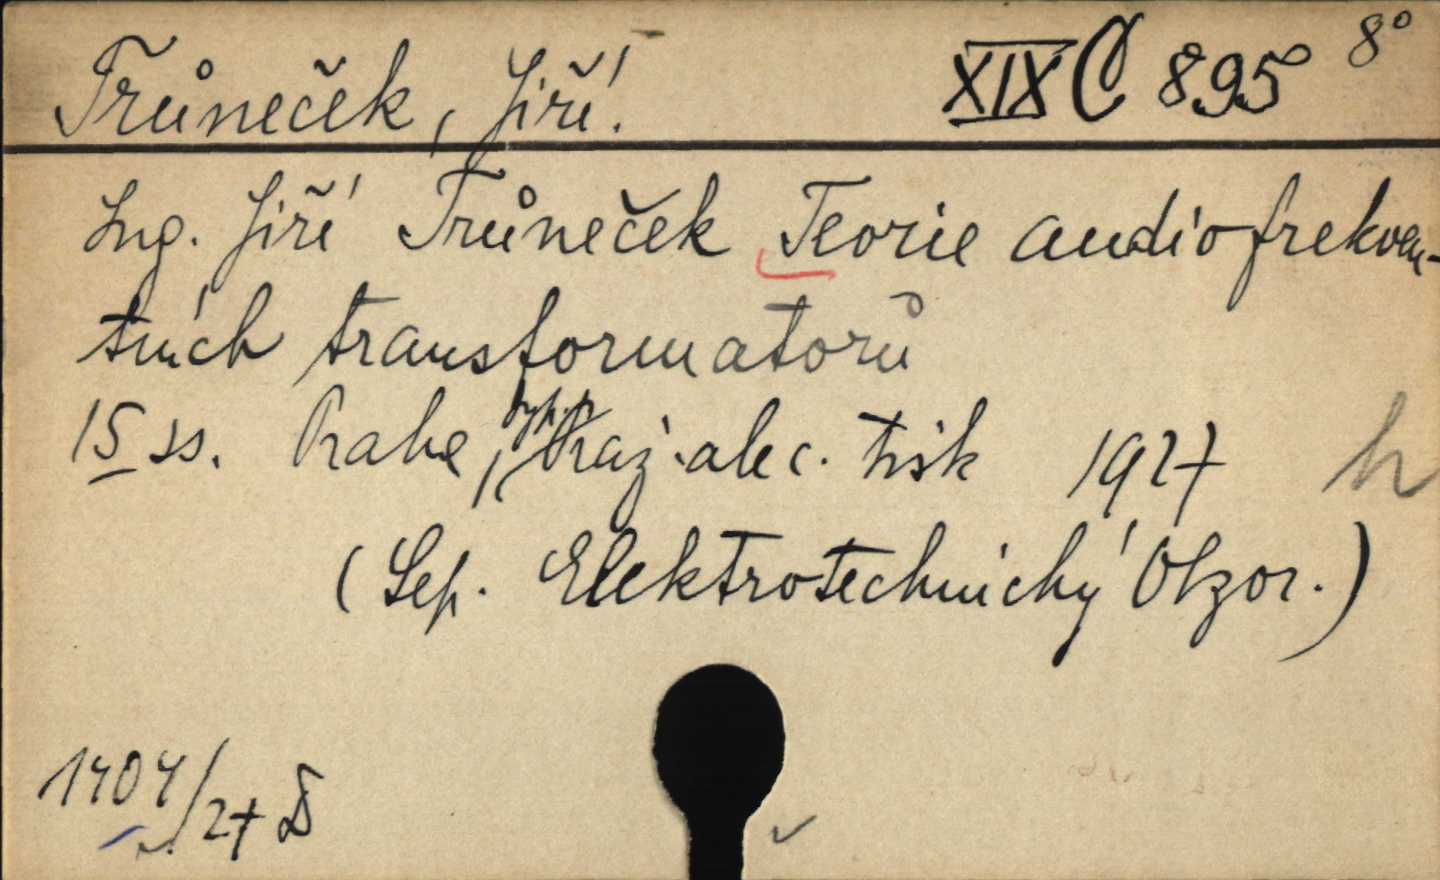 Trůneček, Jiří. XIX C 895 8°
Ing. Jiří Trůneček Teorie audiofrekven-
tních transformatorů
15 ss. Praha, typ. Praž. akc. tisk 1927 h
(Sep. Elektrotechnický Obzor.)
1404/27 D